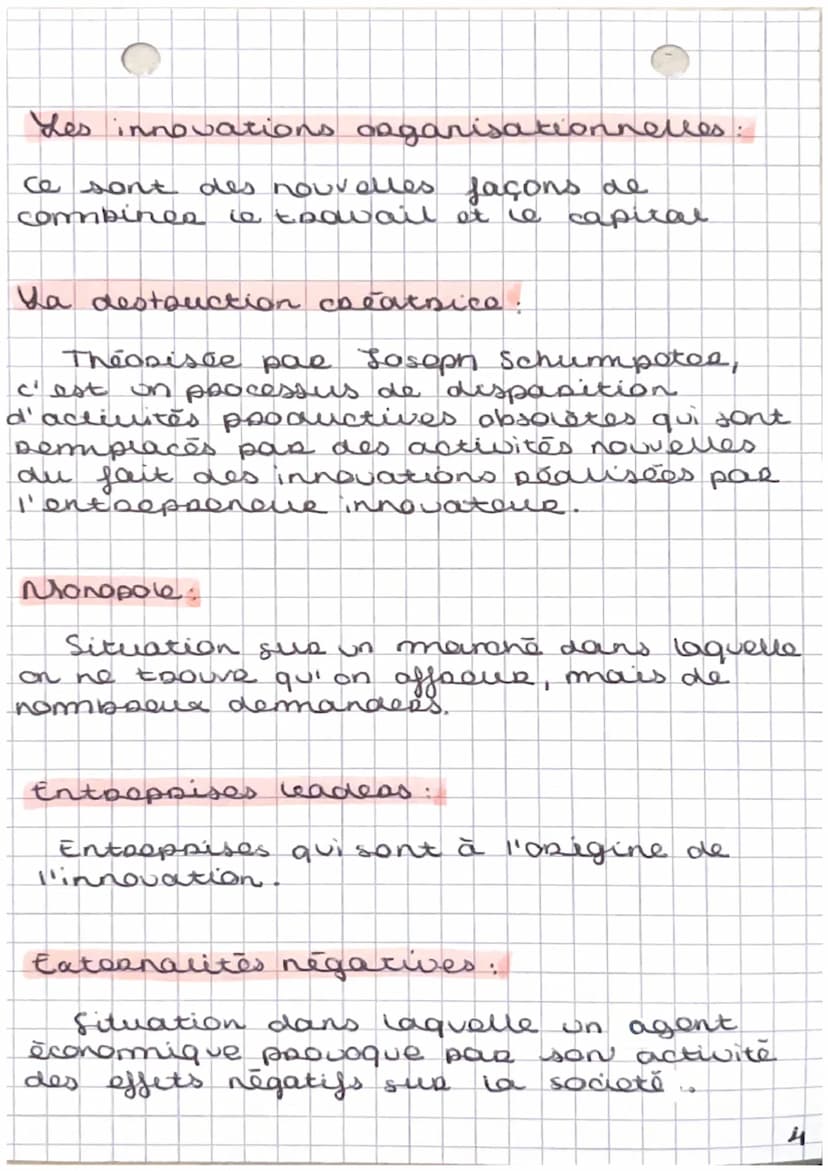 Les innovations organisationnelles :
Ce sont des nouvelles façons de
combiner le travail et le capital
La destruction créatrice :
Théorisée par Joseph Schumpeter,
c'est un processus de disparition
d'activités productives obsolètes qui sont
remplacés par des activités nouvelles
du fait des innovations réalisées par
l'entrepreneur innovateur.
Monopole :
Situation sur un marché dans laquelle
on ne trouve qu'un offreur, mais de
nombreux demanders.
Entreprises leaders :
Entreprises qui sont à l'origine de
l'innovation.
Externalités négatives :
Situation dans laquelle un agent
économique provoque par son activité
des effets négatifs sur la societé.
4